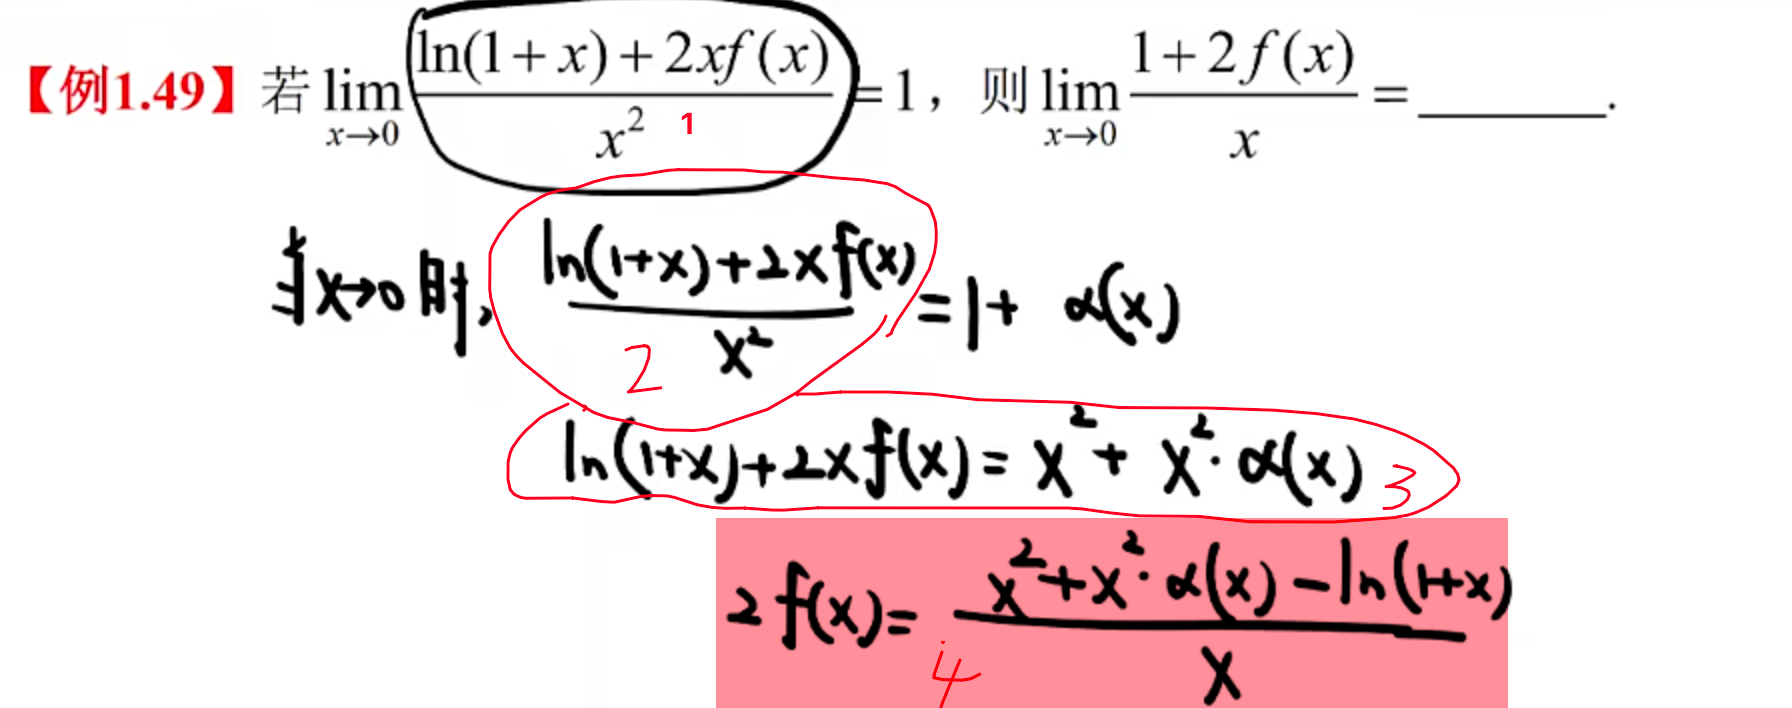 【例1.49】若 lim_{x→0} (ln(1+x)+2xf(x))/x² = 1，则 lim_{x→0} (1+2f(x))/x = ______.
1
当x→0时, (ln(1+x)+2xf(x))/x² = 1+ α(x)
2
ln(1+x)+2xf(x) = x² + x²·α(x) 3
2f(x) = (x²+x²·α(x)-ln(1+x))/x
4